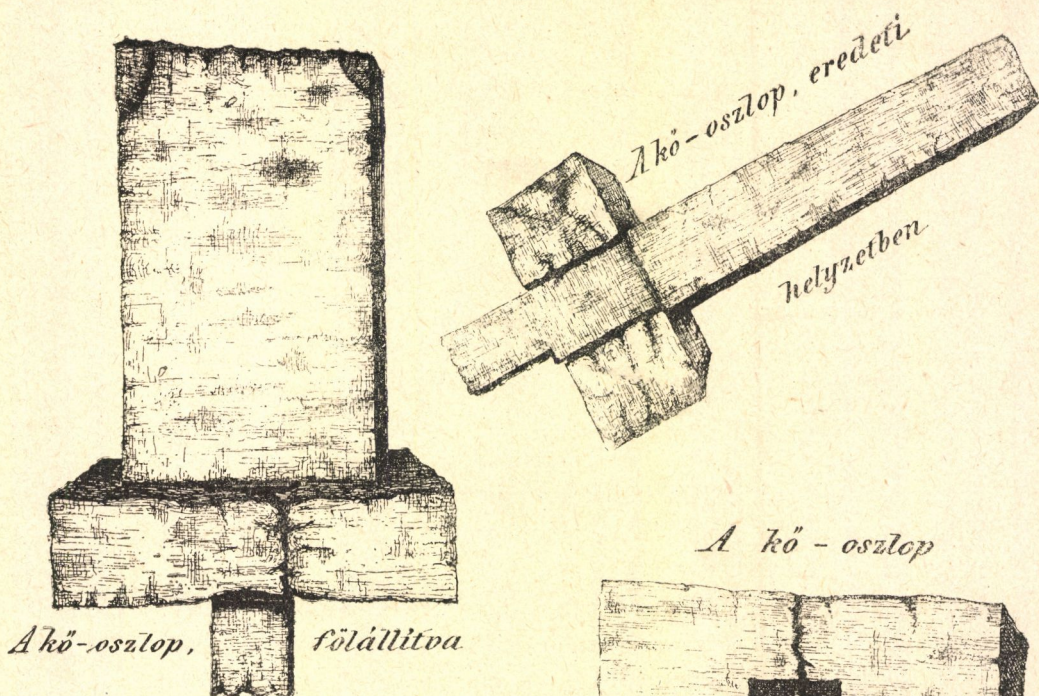 A kő-oszlop, eredeti
helyzetben
A kő - oszlop
A kő-oszlop, fölállítva